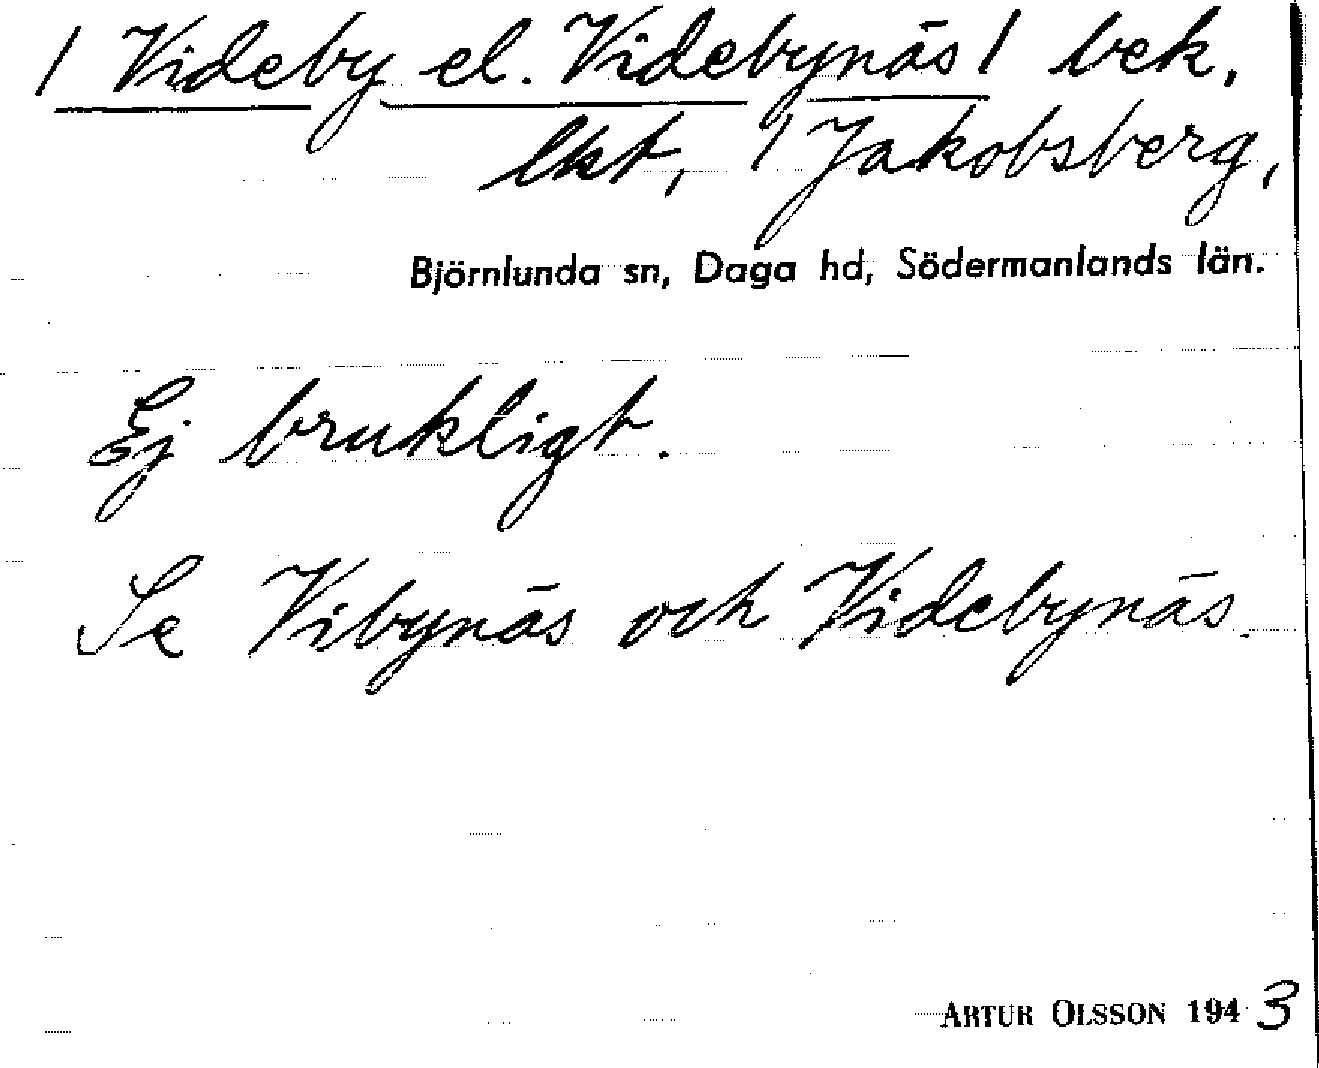 / Videby el. Videbynäs / bek.
lkt, / Jakobsberg,
Björnlunda sn, Daga hd, Södermanlands län.
Ej brukligt.
Se Vibynäs och Videbynäs.
ARTUR OLSSON 1943